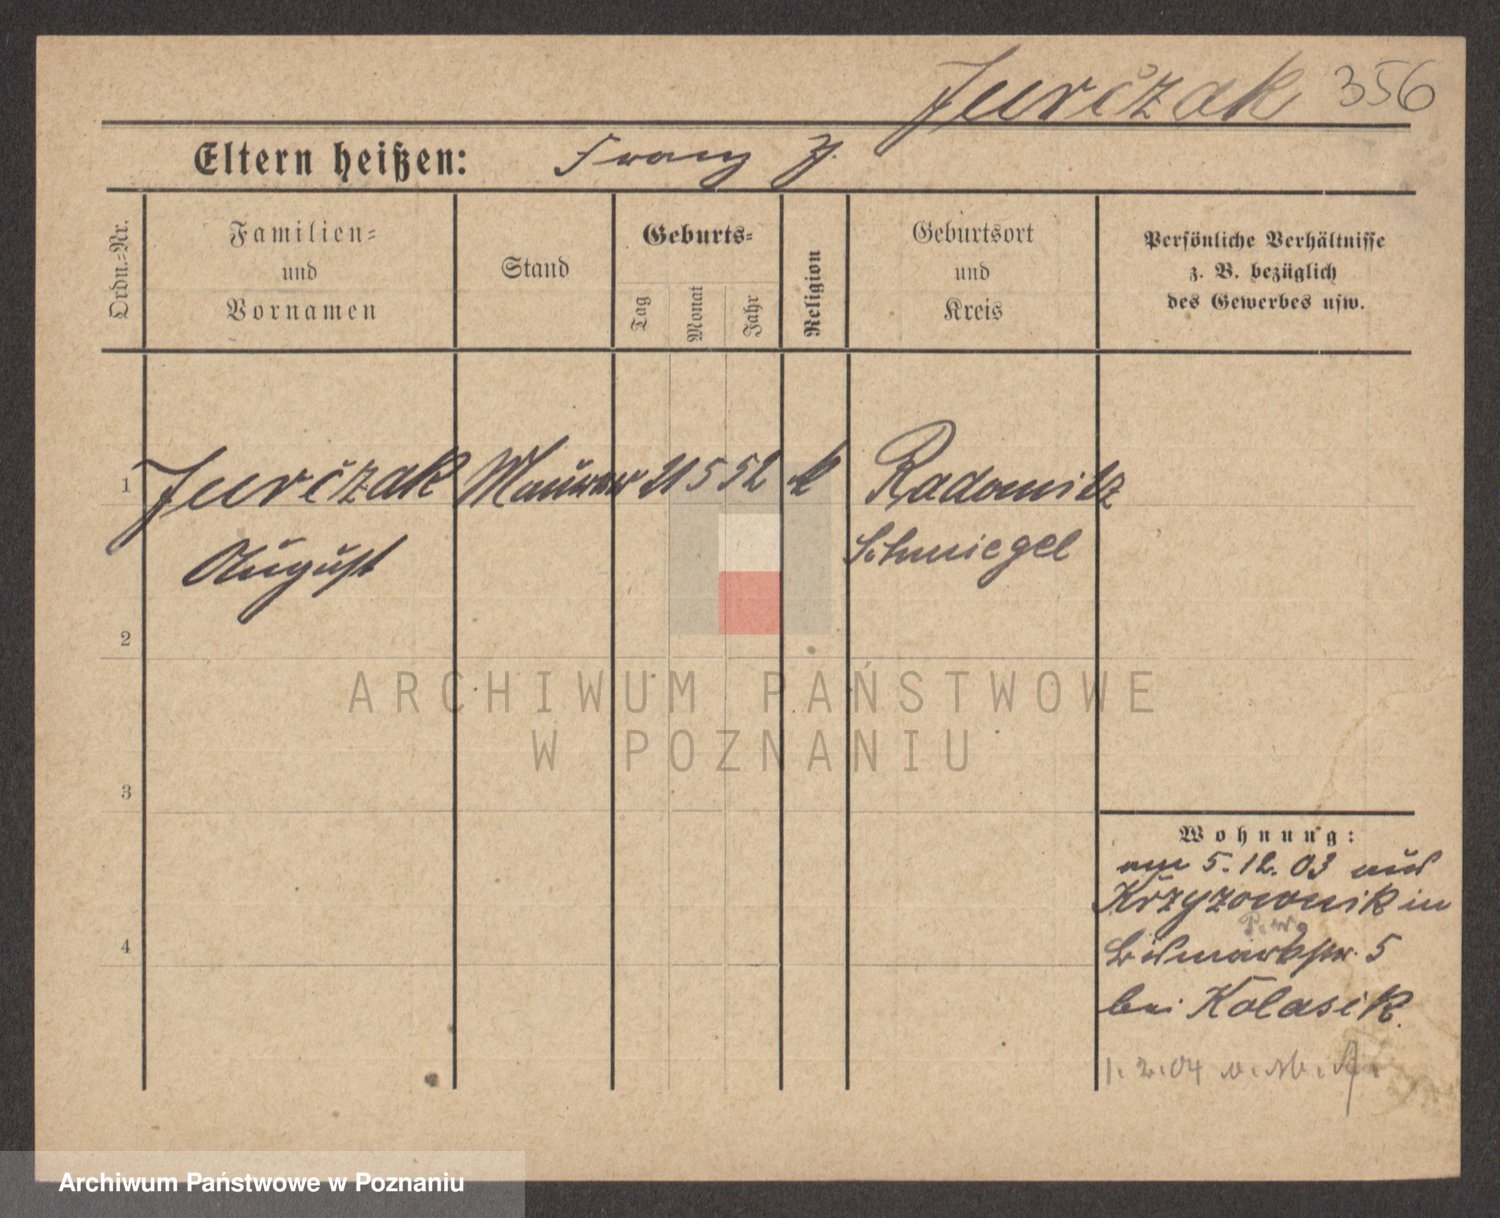 Jurczak 356
Eltern heißen: Franz J.
Ordn.-Nr.
Familien-
und
Vornamen
Stand
Geburts-
Tag
Monat
Jahr
Religion
Geburtsort
und
Kreis
Persönliche Verhältnisse
z. B. bezüglich
des Gewerbes usw.
1 Jurczak Maurer 21 5 52 k Radomitz
August Schmiegel
2
ARCHIWUM PAŃSTWOWE
W POZNANIU
3
Wohnung:
am 5.12.03 aus
Krzyzownik in
4 Bismarkstr. 5
bei Kolasik.
1.2.04
Archiwum Państwowe w Poznaniu